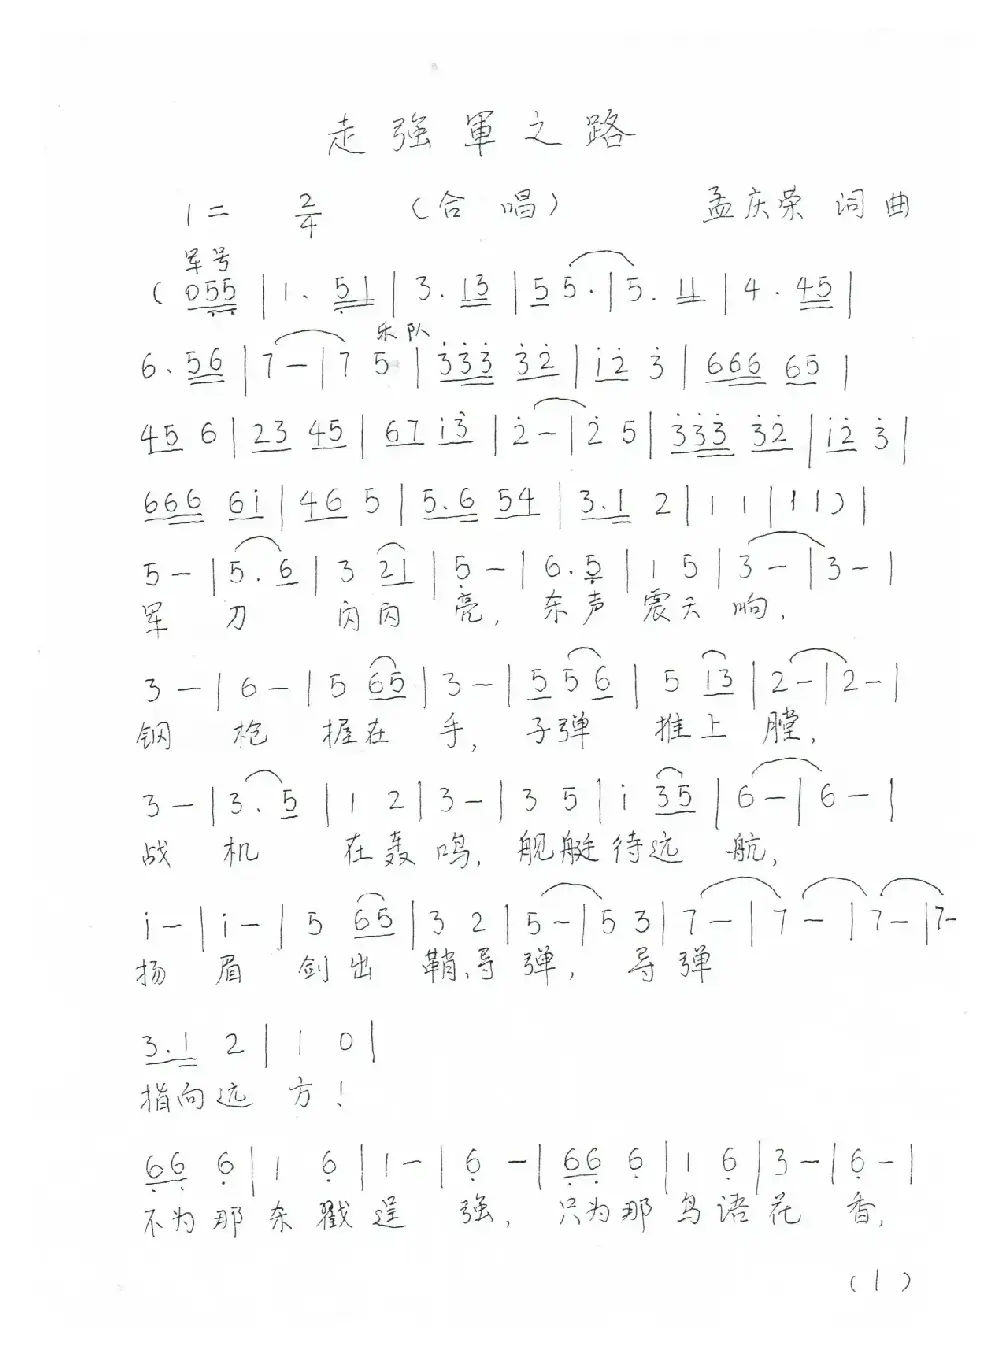 走强軍之路
1= 2/4 (合 唱) 孟庆荣 词曲
军号
( 055 | 1. 51 | 3. 13 | 5 5. | 5. 11 | 4. 45 |
乐队
6. 56 | 7 — | 7 5 | 333 32 | 12 3 | 666 65 |
45 6 | 23 45 | 67 13 | 2 — | 2 5 | 333 32 | 12 3 |
666 61 | 46 5 | 5.6 54 | 3.1 2 | 1 1 | 11) |
5 — | 5. 6 | 3 21 | 5 — | 6. 5 | 1 5 | 3 — | 3 — |
军 刀 闪闪 亮, 东声 震天 响,
3 — | 6 — | 5 65 | 3 — | 5 5 6 | 5 13 | 2 — | 2 — |
钢 枪 握在 手, 子弹 推上 膛,
3 — | 3. 5 | 1 2 | 3 — | 3 5 | 1 35 | 6 — | 6 — |
战 机 在轰 鸣, 舰艇待远 航,
1 — | 1 — | 5 65 | 3 2 | 5 — | 5 3 | 7 — | 7 — | 7 — | 7 —
扬 眉 剑出 鞘,导弹, 导弹
3.1 2 | 1 0 |
指向远 方!
66 6 | 1 6 | 1 — | 6 — | 66 6 | 1 6 | 3 — | 6 — |
不为那 杀戮逞 强, 只为那鸟语花 香,
(1)